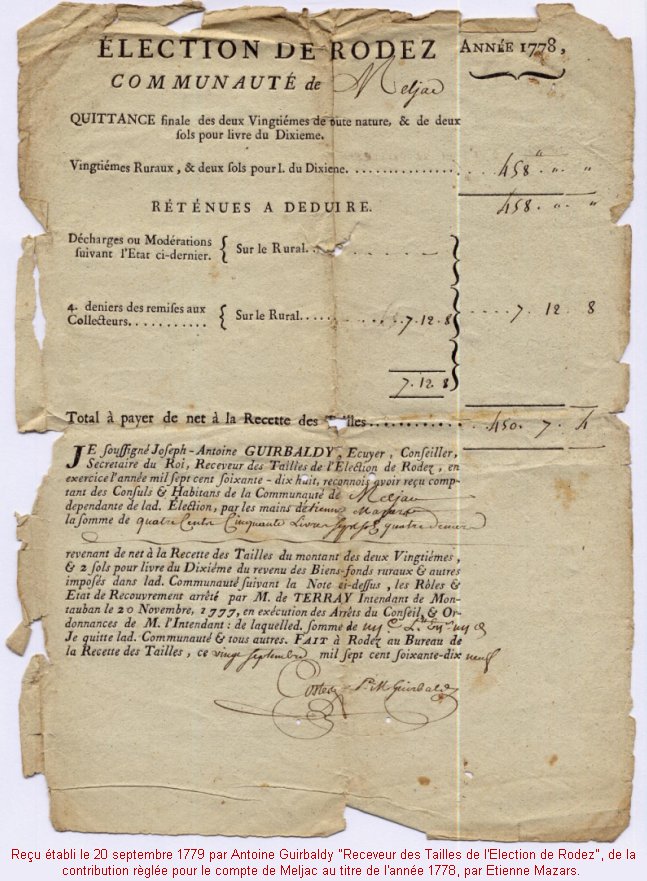 ÉLECTION DE RODEZ ANNÉE 1778,
COMMUNAUTÉ de Meljac
QUITTANCE finale des deux Vingtiémes de toute nature, & de deux
sols pour livre du Dixieme.
Vingtiémes Ruraux, & deux sols pour l. du Dixieme. .................. 458 " "
RÉTENUES A DEDUIRE. 458 " "
Décharges ou Modérations
suivant l'Etat ci-dernier. { Sur le Rural.
4. deniers des remises aux
Collecteurs........... { Sur le Rural...... 7. 12. 8 ..... 7. 12 8
7. 12 8
Total à payer de net à la Recette des Tailles ................ 450. 7. 4
JE soussigné Joseph-Antoine GUIRBALDY, Ecuyer, Conseiller,
Secretaire du Roi, Receveur des Tailles de l'Election de Rodez, en
exercice l'année mil sept cent soixante-dix huit, reconnois avoir reçu comp-
tant des Consuls & Habitans de la Communauté de Meljac
dependante de lad. Élection, par les mains detienne Mazars
la somme de quatre Cents Cinquante Livres sept s quatre deniers
revenant de net à la Recette des Tailles du montant des deux Vingtiémes,
& 2 sols pour Livre du Dixiéme du revenu des Biens-fonds ruraux & autres
imposés dans lad. Communauté suivant la Note ci-dessus, les Rôles &
Etat de Recouvrement arrêté par M. de TERRAY Intendant de Mon-
tauban le 20 Novembre, 1777, en exécution des Arrêts du Conseil, & Or-
donnances de M. l'Intendant: de laquelled. somme de
Je quitte lad. Communauté & tous autres. FAIT à Rodez au Bureau de
la Recette des Tailles, ce vingt septembre mil sept cent soixante-dix neuf
Guirbaldy
Reçu établi le 20 septembre 1779 par Antoine Guirbaldy "Receveur des Tailles de l'Election de Rodez", de la
contribution règlée pour le compte de Meljac au titre de l'année 1778, par Etienne Mazars.